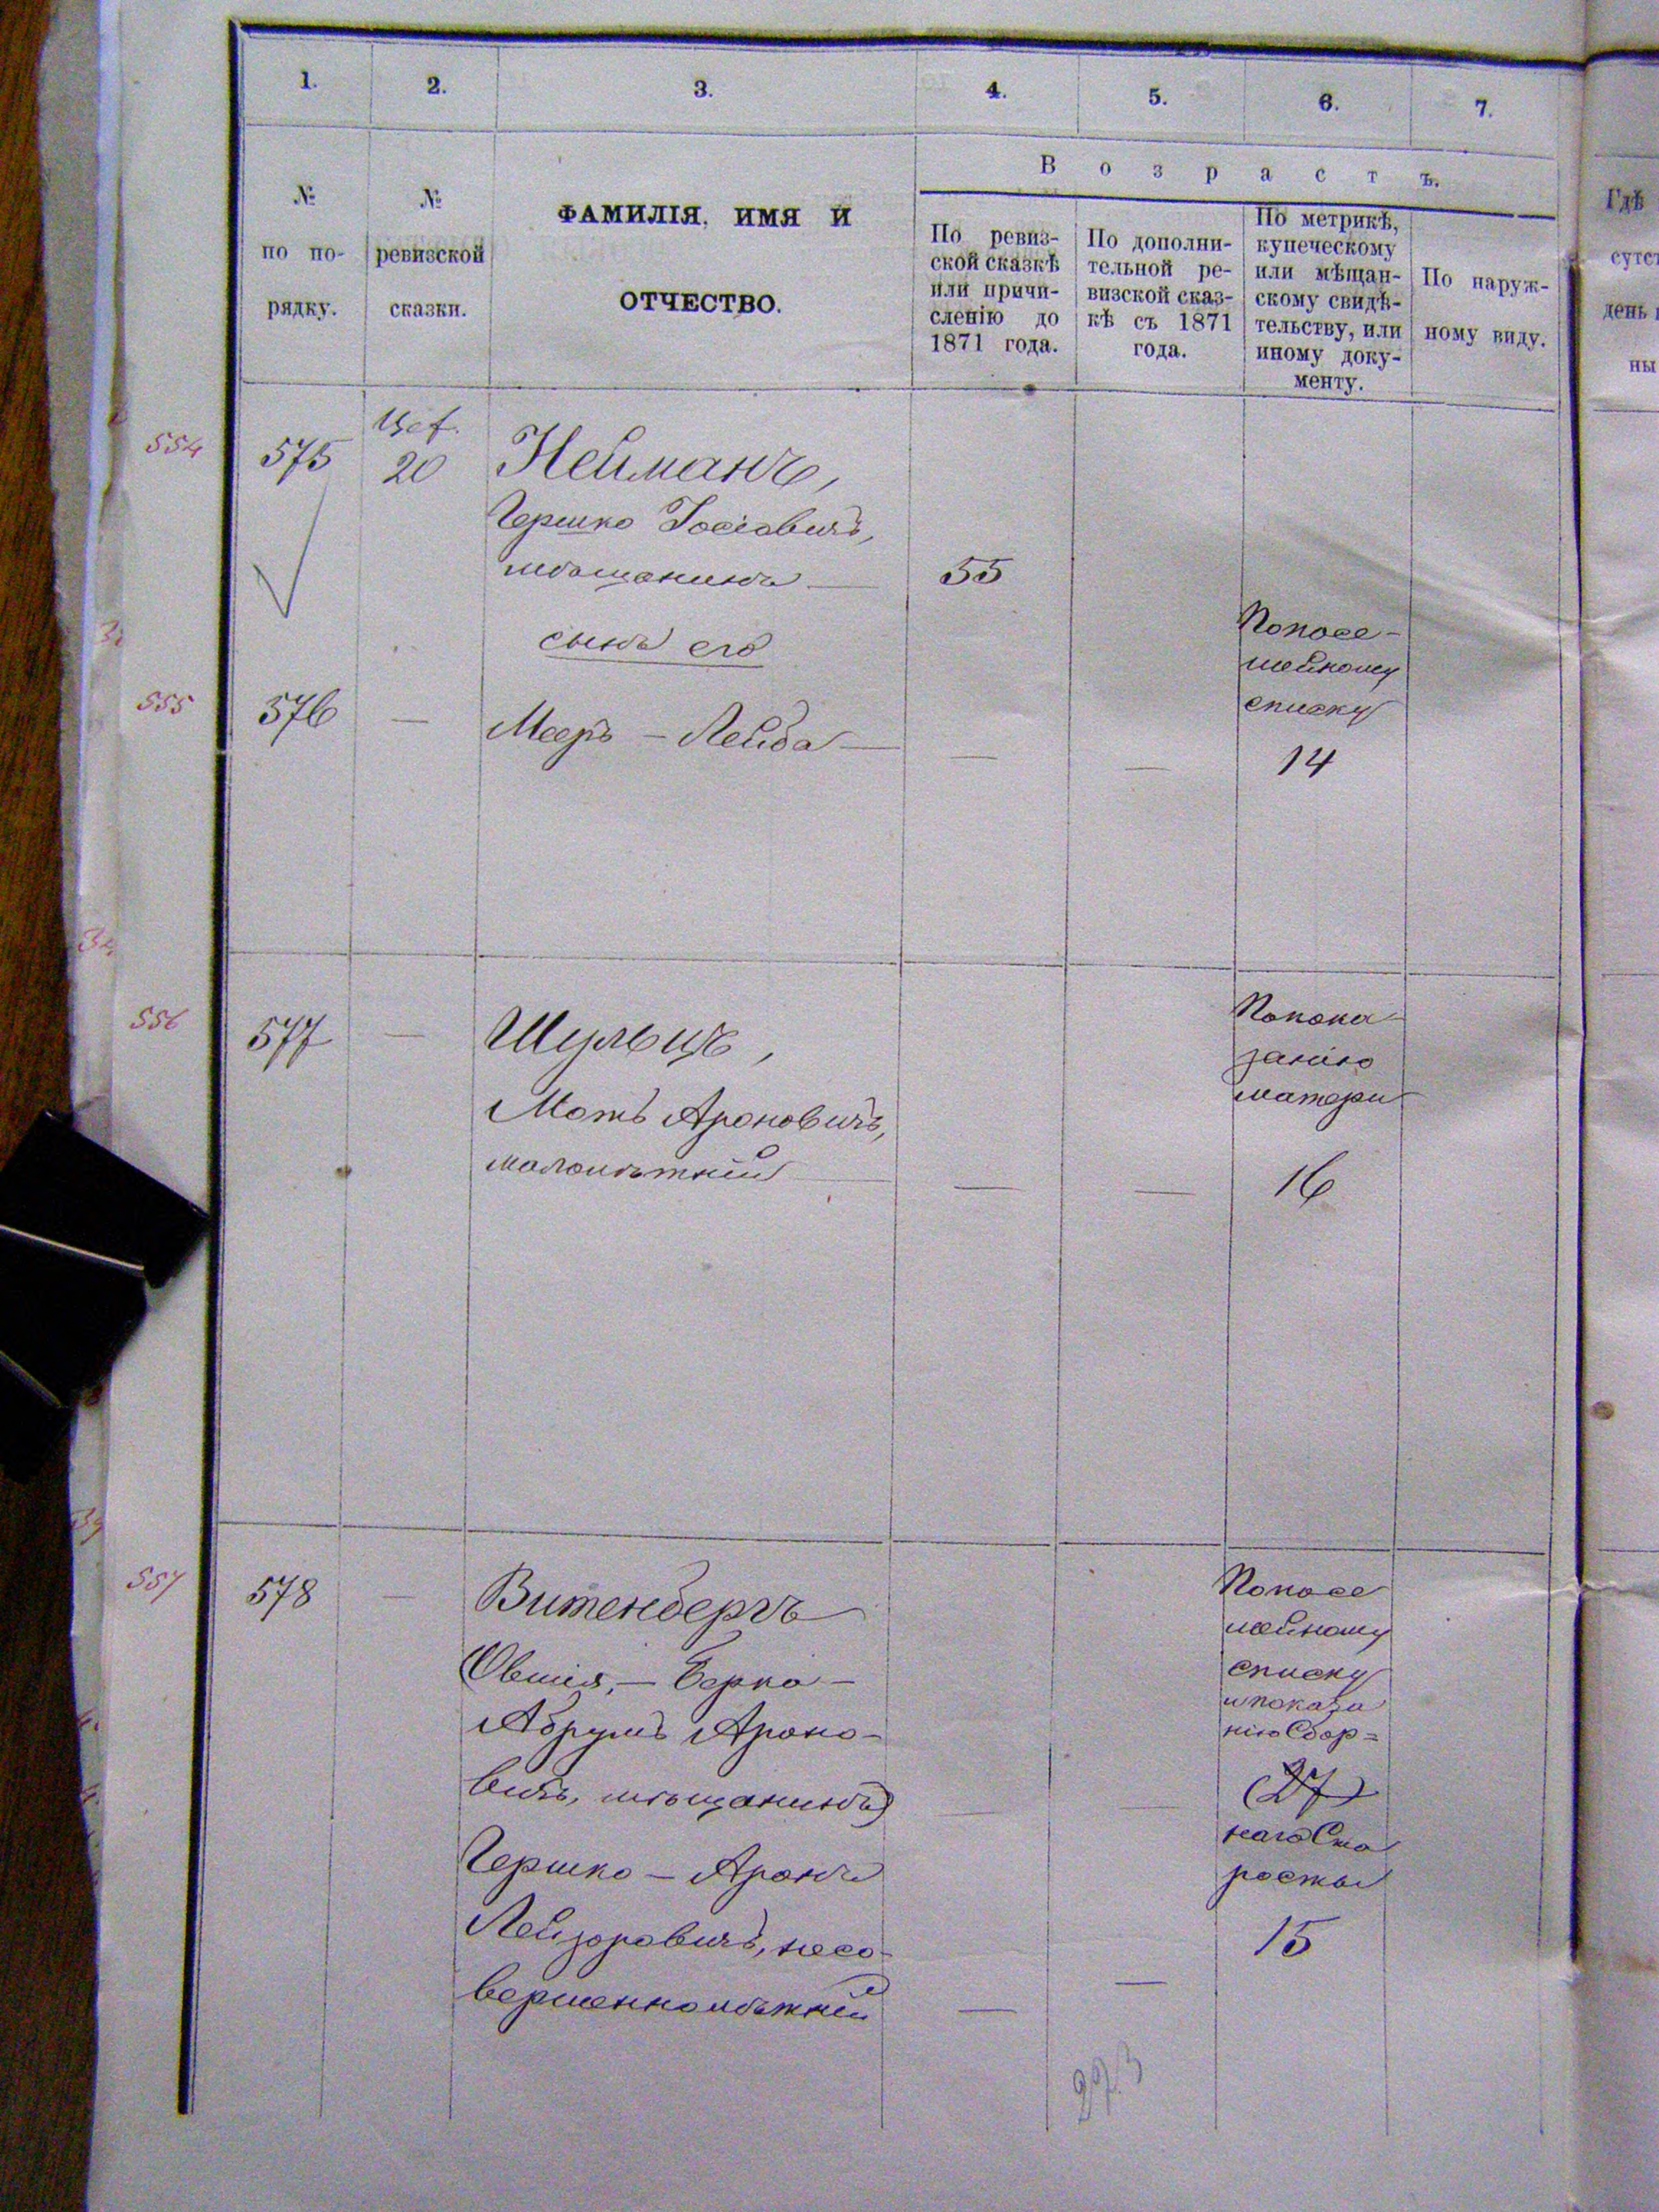 1. 2. 3. 4. 5. 6. 7.
№
по по-
рядку.
№
ревизской
сказки.
ФАМИЛІЯ, ИМЯ И
ОТЧЕСТВО.
Возрастъ.
По ревиз-
ской сказкѣ
или причи-
сленію до
1871 года.
По дополни-
тельной ре-
визской сказ-
кѣ съ 1871
года.
По метрикѣ,
купеческому
или мѣщан-
скому свидѣ-
тельству, или
иному доку-
менту.
По наруж-
ному виду.
Гдѣ
сутст
день
ны
554
575
20
Нейманъ,
Гершко Іосіовичъ,
мѣщанинъ —
55
сынъ его
555
576
—
Мееръ - Лейба —
—
—
По посе-
мейному
списку
14
556
577
—
Шульцъ,
Мотъ Ароновичъ,
малолѣтній —
—
—
По пока-
занію
матери
16
557
578
—
Витенбергъ
(Овшія, - Берко -
Абрумъ Ароно-
вичъ, мѣщанинъ)
—
—
Гершко - Аронъ
Лейзоровичъ, несо-
вершеннолѣтній
—
—
По посе
мейному
списку
и показа
нію Сбор=
(27)
наго Ста
росты
15
273